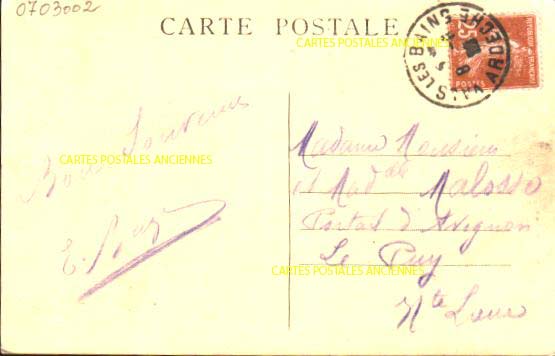 0703002
CARTE POSTALE
CARTES POSTALES ANCIENNES
VALS LES BAINS ARDECHE
REPUBLIQUE FRANÇAISE
25
POSTES
Bon Souvenir
CARTES POSTALES ANCIENNES
Madame Monsieur
et Mad de Malosse
Portail d'Avignon
Le Puy
CARTES POSTALES ANCIENNES
Hte Loire